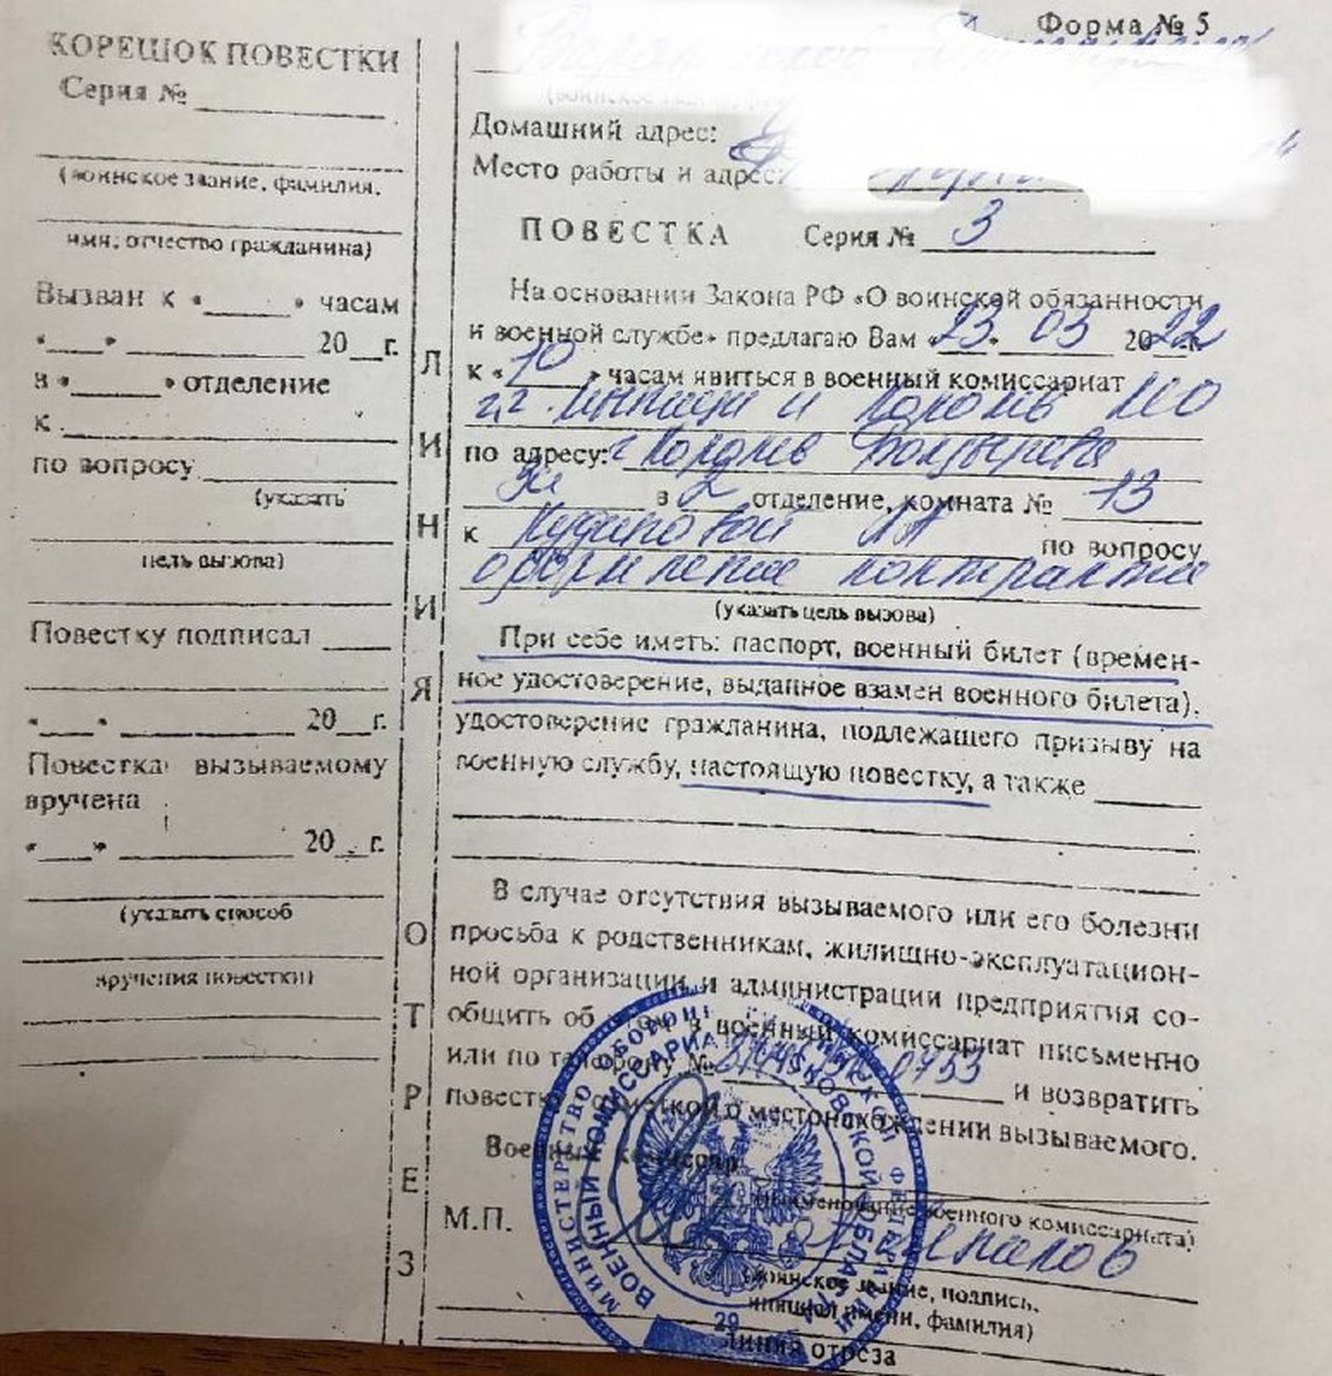 КОРЕШОК ПОВЕСТКИ
Серия №
(воинское звание, фамилия,
имя, отчество гражданина)
Вызван к « » часам
« » 20 г.
в « » отделение
к
по вопросу
(указать
цель вызова)
Повестку подписал
« » 20 г.
Повестка вызываемому
вручена
« » 20 г.
(указать способ
вручения повестки)
ЛИНИЯ ОТРЕЗ
Форма № 5
Домашний адрес:
Место работы и адрес:
ПОВЕСТКА Серия № 3
На основании Закона РФ «О воинской обязанности
и военной службе» предлагаю Вам «23» 03 2022
к «10» часам явиться в военный комиссариат
г.г. Мытищи и Королев МО
по адресу: г Королев Болдырева
в 2 отделение, комната № 13
к по вопросу
оформление контракта
(указать цель вызова)
При себе иметь: паспорт, военный билет (времен-
ное удостоверение, выданное взамен военного билета),
удостоверение гражданина, подлежащего призыву на
военную службу, настоящую повестку, а также
В случае отсутствия вызываемого или его болезни
просьба к родственникам, жилищно-эксплуатацион-
ной организации и администрации предприятия со-
общить об в военный комиссариат письменно
или по телефону № и возвратить
повестку с отметкой о местонахождении вызываемого.
Военный комиссар
(наименование военного комиссариата)
М.П.
(воинское звание, подпись,
инициал имени, фамилия)
линия отреза
МИНИСТЕРСТВО ОБОРОНЫ РОССИЙСКОЙ ФЕДЕРАЦИИ
ВОЕННЫЙ КОМИССАРИАТ МОСКОВСКОЙ ОБЛАСТИ
29